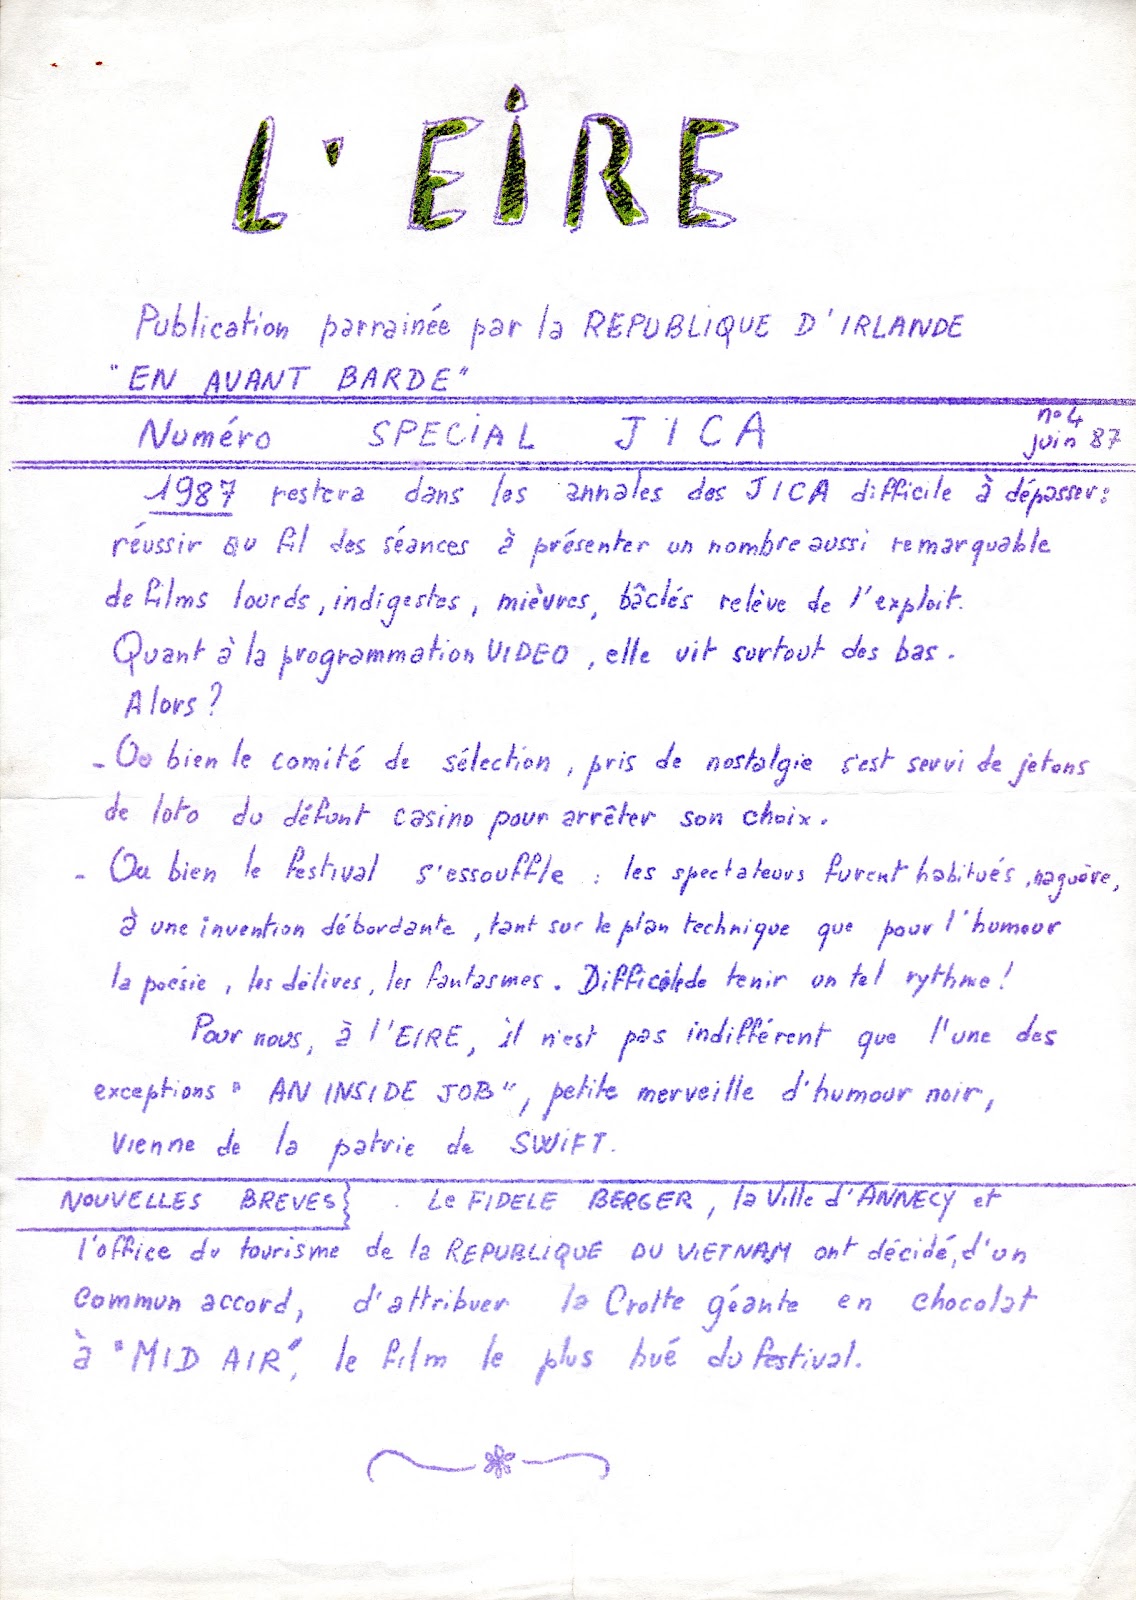 L'EIRE
Publication parrainée par la REPUBLIQUE D'IRLANDE
"EN AVANT BARDE"
Numéro SPECIAL JICA
n°4
juin 87
1987 restera dans les annales des JICA difficile à dépasser:
réussir au fil des séances à présenter un nombre aussi remarquable
de films lourds, indigestes, mièvres, bâclés relève de l'exploit.
Quant à la programmation VIDEO, elle vit surtout des bas.
Alors?
- Ou bien le comité de sélection, pris de nostalgie s'est servi de jetons
de loto du défunt casino pour arrêter son choix.
- Ou bien le festival s'essouffle : les spectateurs furent habitués, naguère,
à une invention débordante, tant sur le plan technique que pour l'humour
la poésie, les délires, les fantasmes. Difficile de tenir un tel rythme!
Pour nous, à l'EIRE, il n'est pas indifférent que l'une des
exceptions "AN INSIDE JOB", petite merveille d'humour noir,
vienne de la patrie de SWIFT.
NOUVELLES BREVES} . Le FIDELE BERGER, la Ville d'ANNECY et
l'office du tourisme de la REPUBLIQUE DU VIETNAM ont décidé, d'un
commun accord, d'attribuer la Crotte géante en chocolat
à "MID AIR", le film le plus hué du festival.